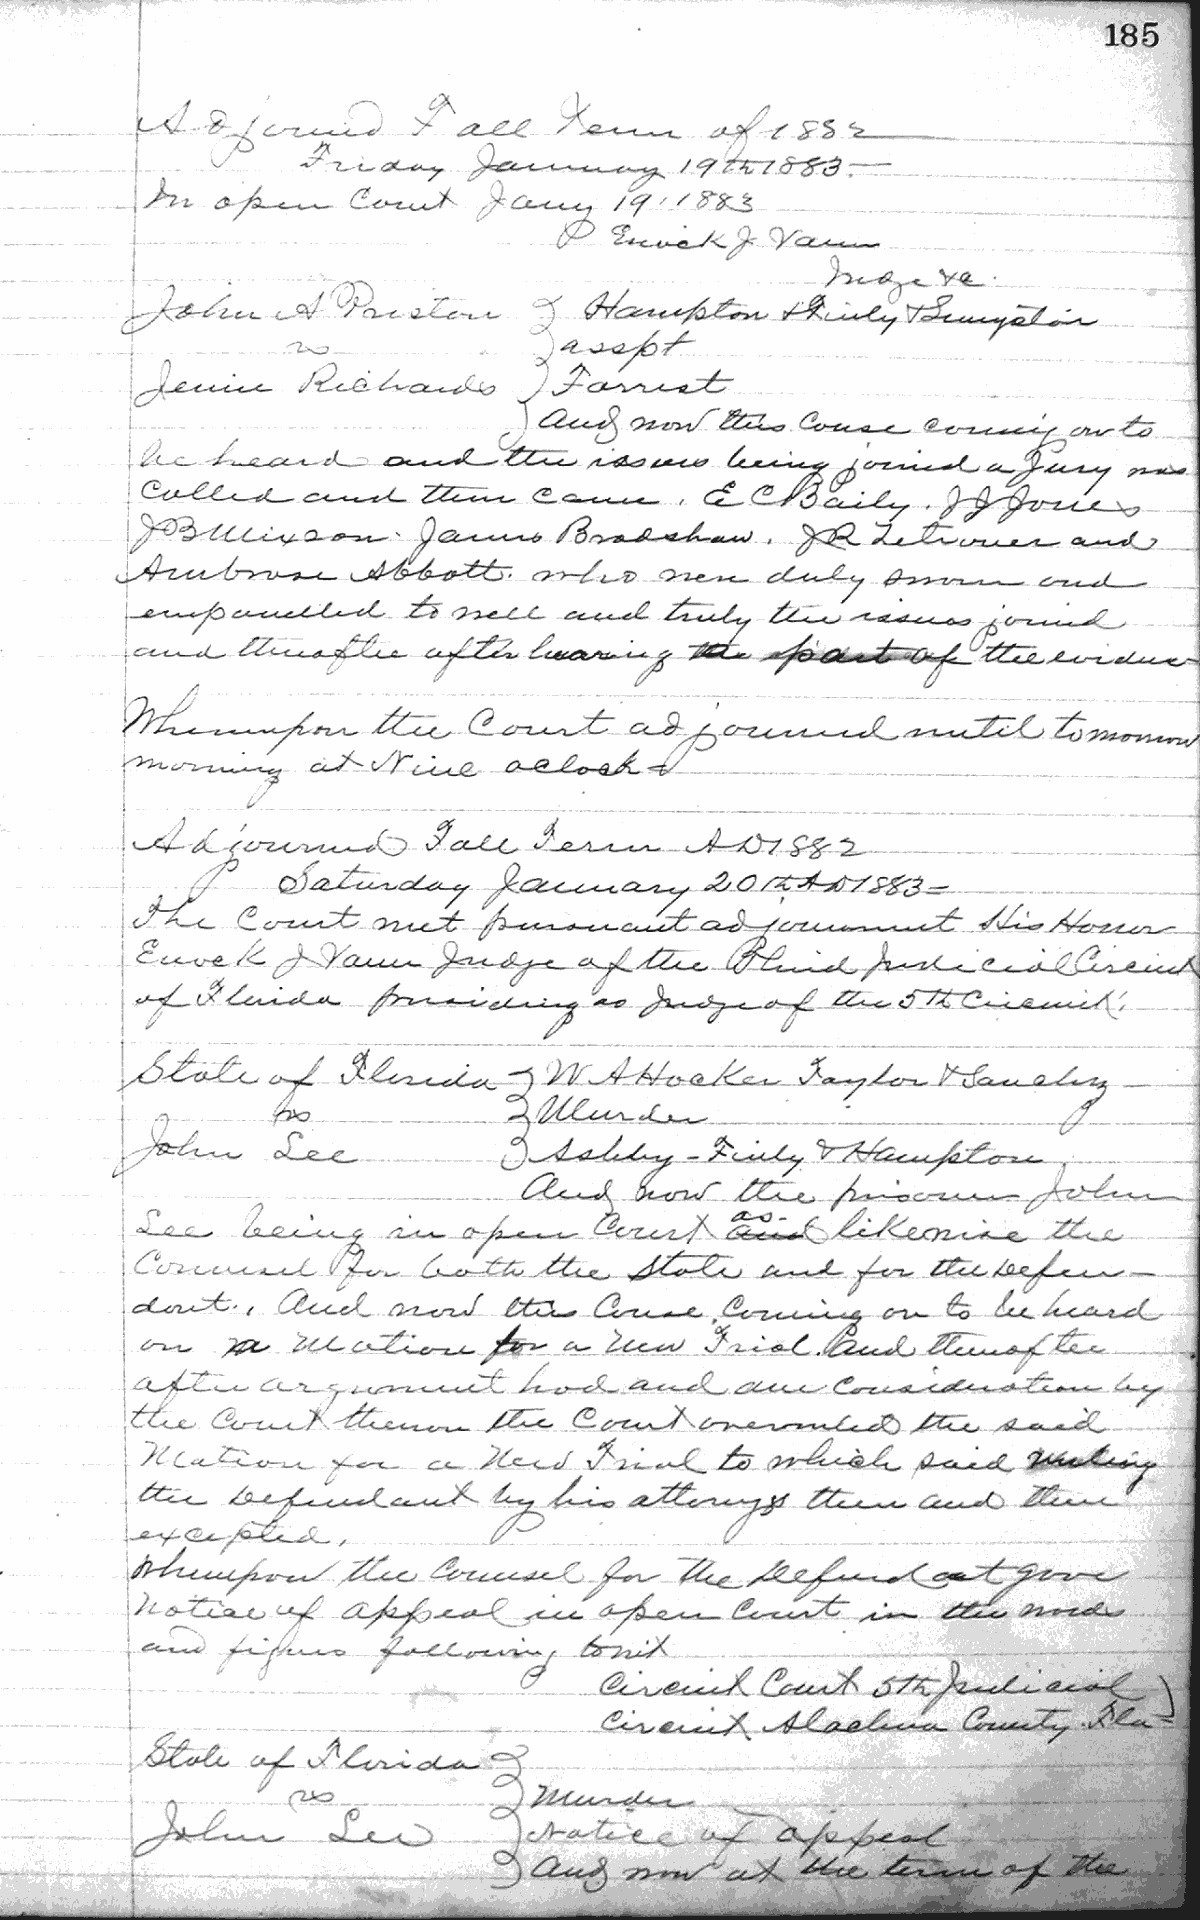 185
Adjourned Fall Term of 1882
Friday January 19th 1883.
In open Court Jany 19, 1883
Enock J. Vann
Judge &c.
John A Preston } Hampton & Finly &
vs } asspt
Jennie Richards } Forrest
} And now this Cause coming on to
be heard and the issues being joined a Jury was
Called and then came. E C Baily. J J Jones
J B Mixson. James Bradshaw. J R and
Ambrose Abbott. who were duly sworn and
empanelled to well and truly the issues joined
and thereafter after hearing the part of the evidence
Whereupon the Court adjourned until tomorrow
morning at Nine oclock
Adjourned Fall Term AD 1882
Saturday January 20th AD 1883
The Court met pursuant adjournment His Honor
Enock J Vann Judge of the Judicial Circuit
of Florida presiding as Judge of the 5th Circuit.
State of Florida } W A Hocker Taylor & Sanchez
vs } Murder
John Lee } Ashby - Finly & Hampton
And now the prisoner John
Lee being in open Court as likewise the
Counsel for both the State and for the Defen-
dant., And now this Cause Coming on to be heard
on a Motion for a New Trial. And thereafter
after argument had and due consideration by
the Court thereon the Court overruled the said
Motion for a New Trial to which said ruling
the Defendant by his attorneys then and there
excepted.
Whereupon the Counsel for the Defendant gave
Notice of appeal in open Court in the words
and figures following towit
Circuit Court 5th Judicial }
Circuit Alachua County. Fla-
State of Florida }
vs } Murder
John Lee } Notice of appeal
} And now at the term of the